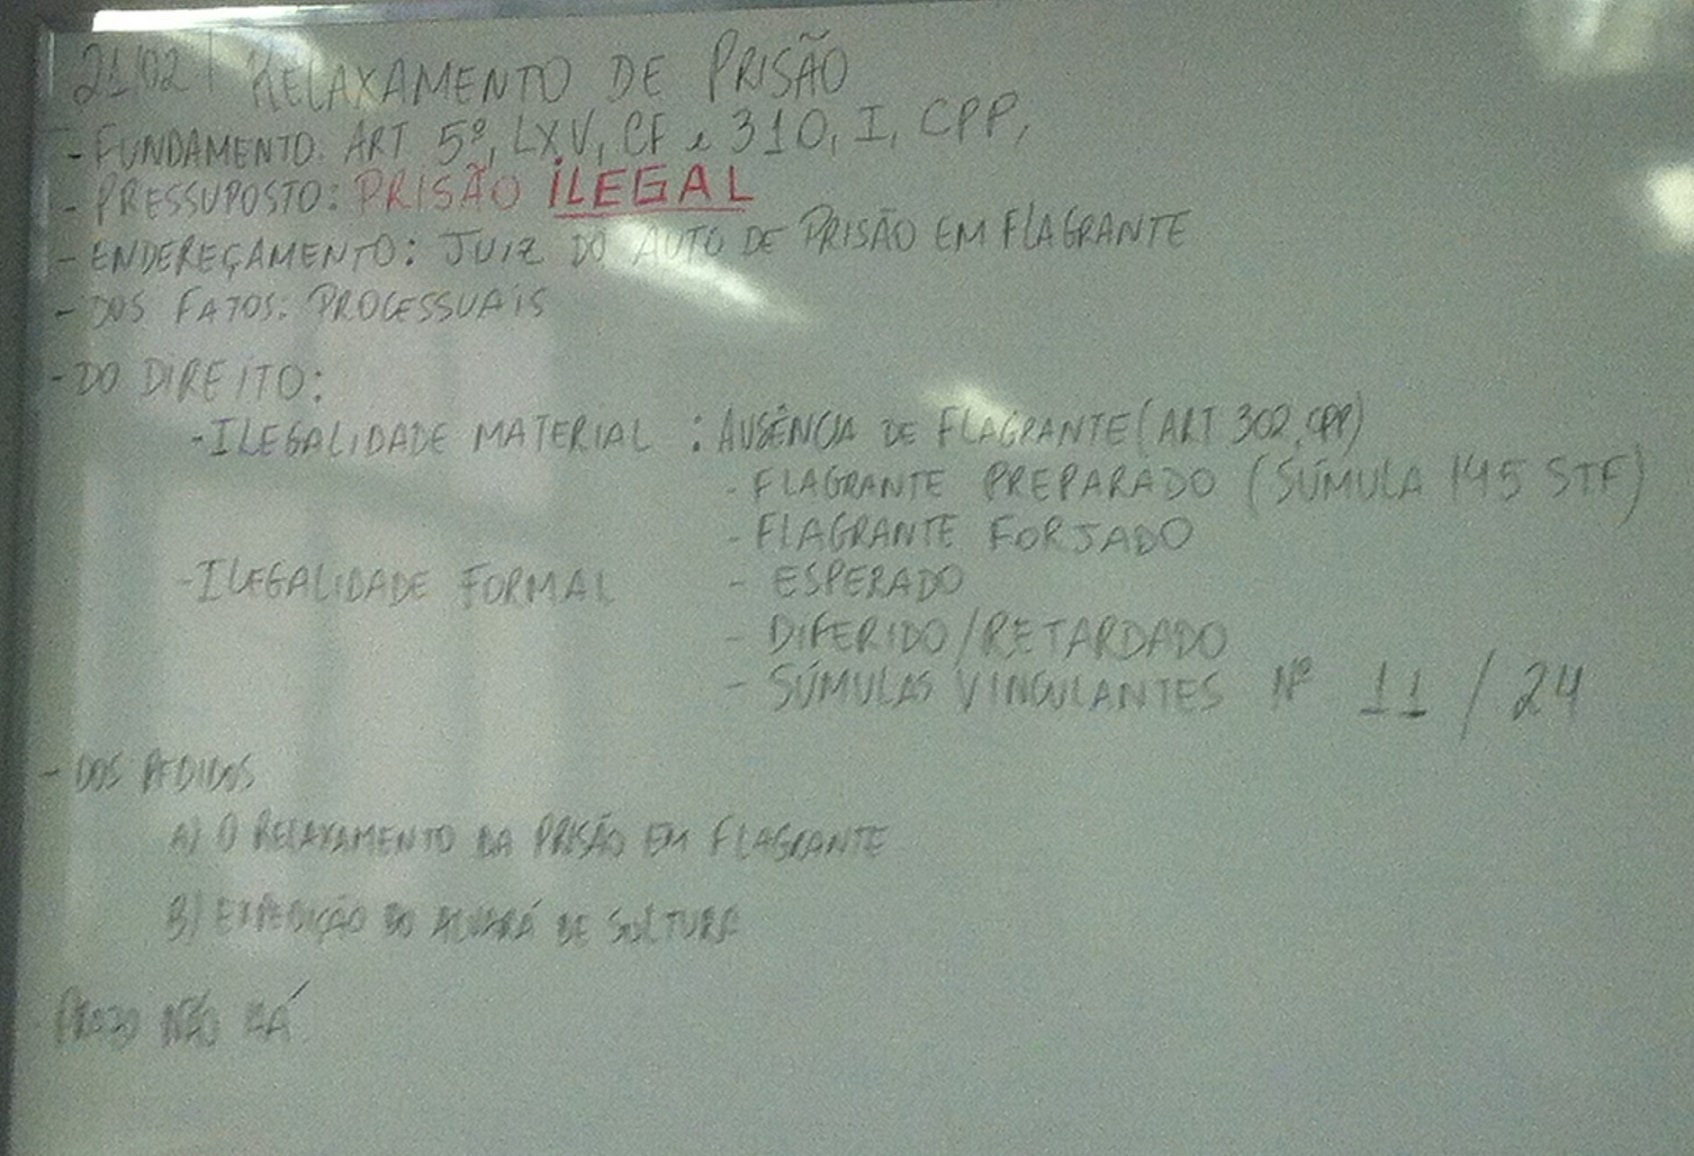 21/02 | RELAXAMENTO DE PRISÃO
- FUNDAMENTO: ART 5º, LXV, CF e 310, I, CPP,
- PRESSUPOSTO: PRISÃO ILEGAL
- ENDEREÇAMENTO: JUIZ DO AUTO DE PRISÃO EM FLAGRANTE
- DOS FATOS: PROCESSUAIS
- DO DIREITO:
- ILEGALIDADE MATERIAL : AUSÊNCIA DE FLAGRANTE (ART 302, CPP)
- FLAGRANTE PREPARADO (SÚMULA 145 STF)
- FLAGRANTE FORJADO
- ILEGALIDADE FORMAL - ESPERADO
- DIFERIDO/RETARDADO
- SÚMULAS VINCULANTES Nº 11 / 24
- DOS PEDIDOS
A) O RELAXAMENTO DA PRISÃO EM FLAGRANTE
B) EXPEDIÇÃO DO ALVARÁ DE SOLTURA
PRAZO NÃO HÁ